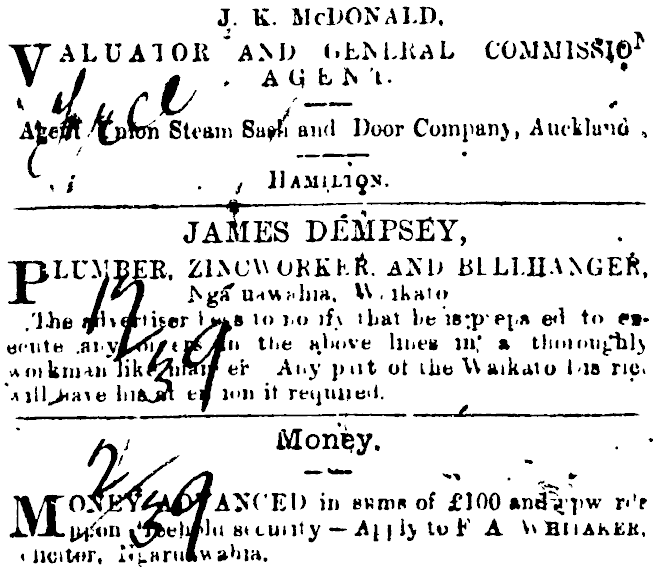 J. K. McDONALD,
VALUATOR AND GENERAL COMMISSION
AGENT.
Agent Union Steam Sash and Door Company, Auckland,
HAMILTON.
JAMES DEMPSEY,
PLUMBER, ZINCWORKER, AND BELLHANGER,
Ngaruawahia, Waikato
The advertiser begs to notify that he is prepared to ex-
ecute any orders in the above lines in a thoroughly
workman like manner Any part of the Waikato district
will have his attention if required.
Money.
MONEY ADVANCED in sums of £100 and
upon freehold security — Apply to F A WHITAKER,
Solicitor, Ngaruawahia.